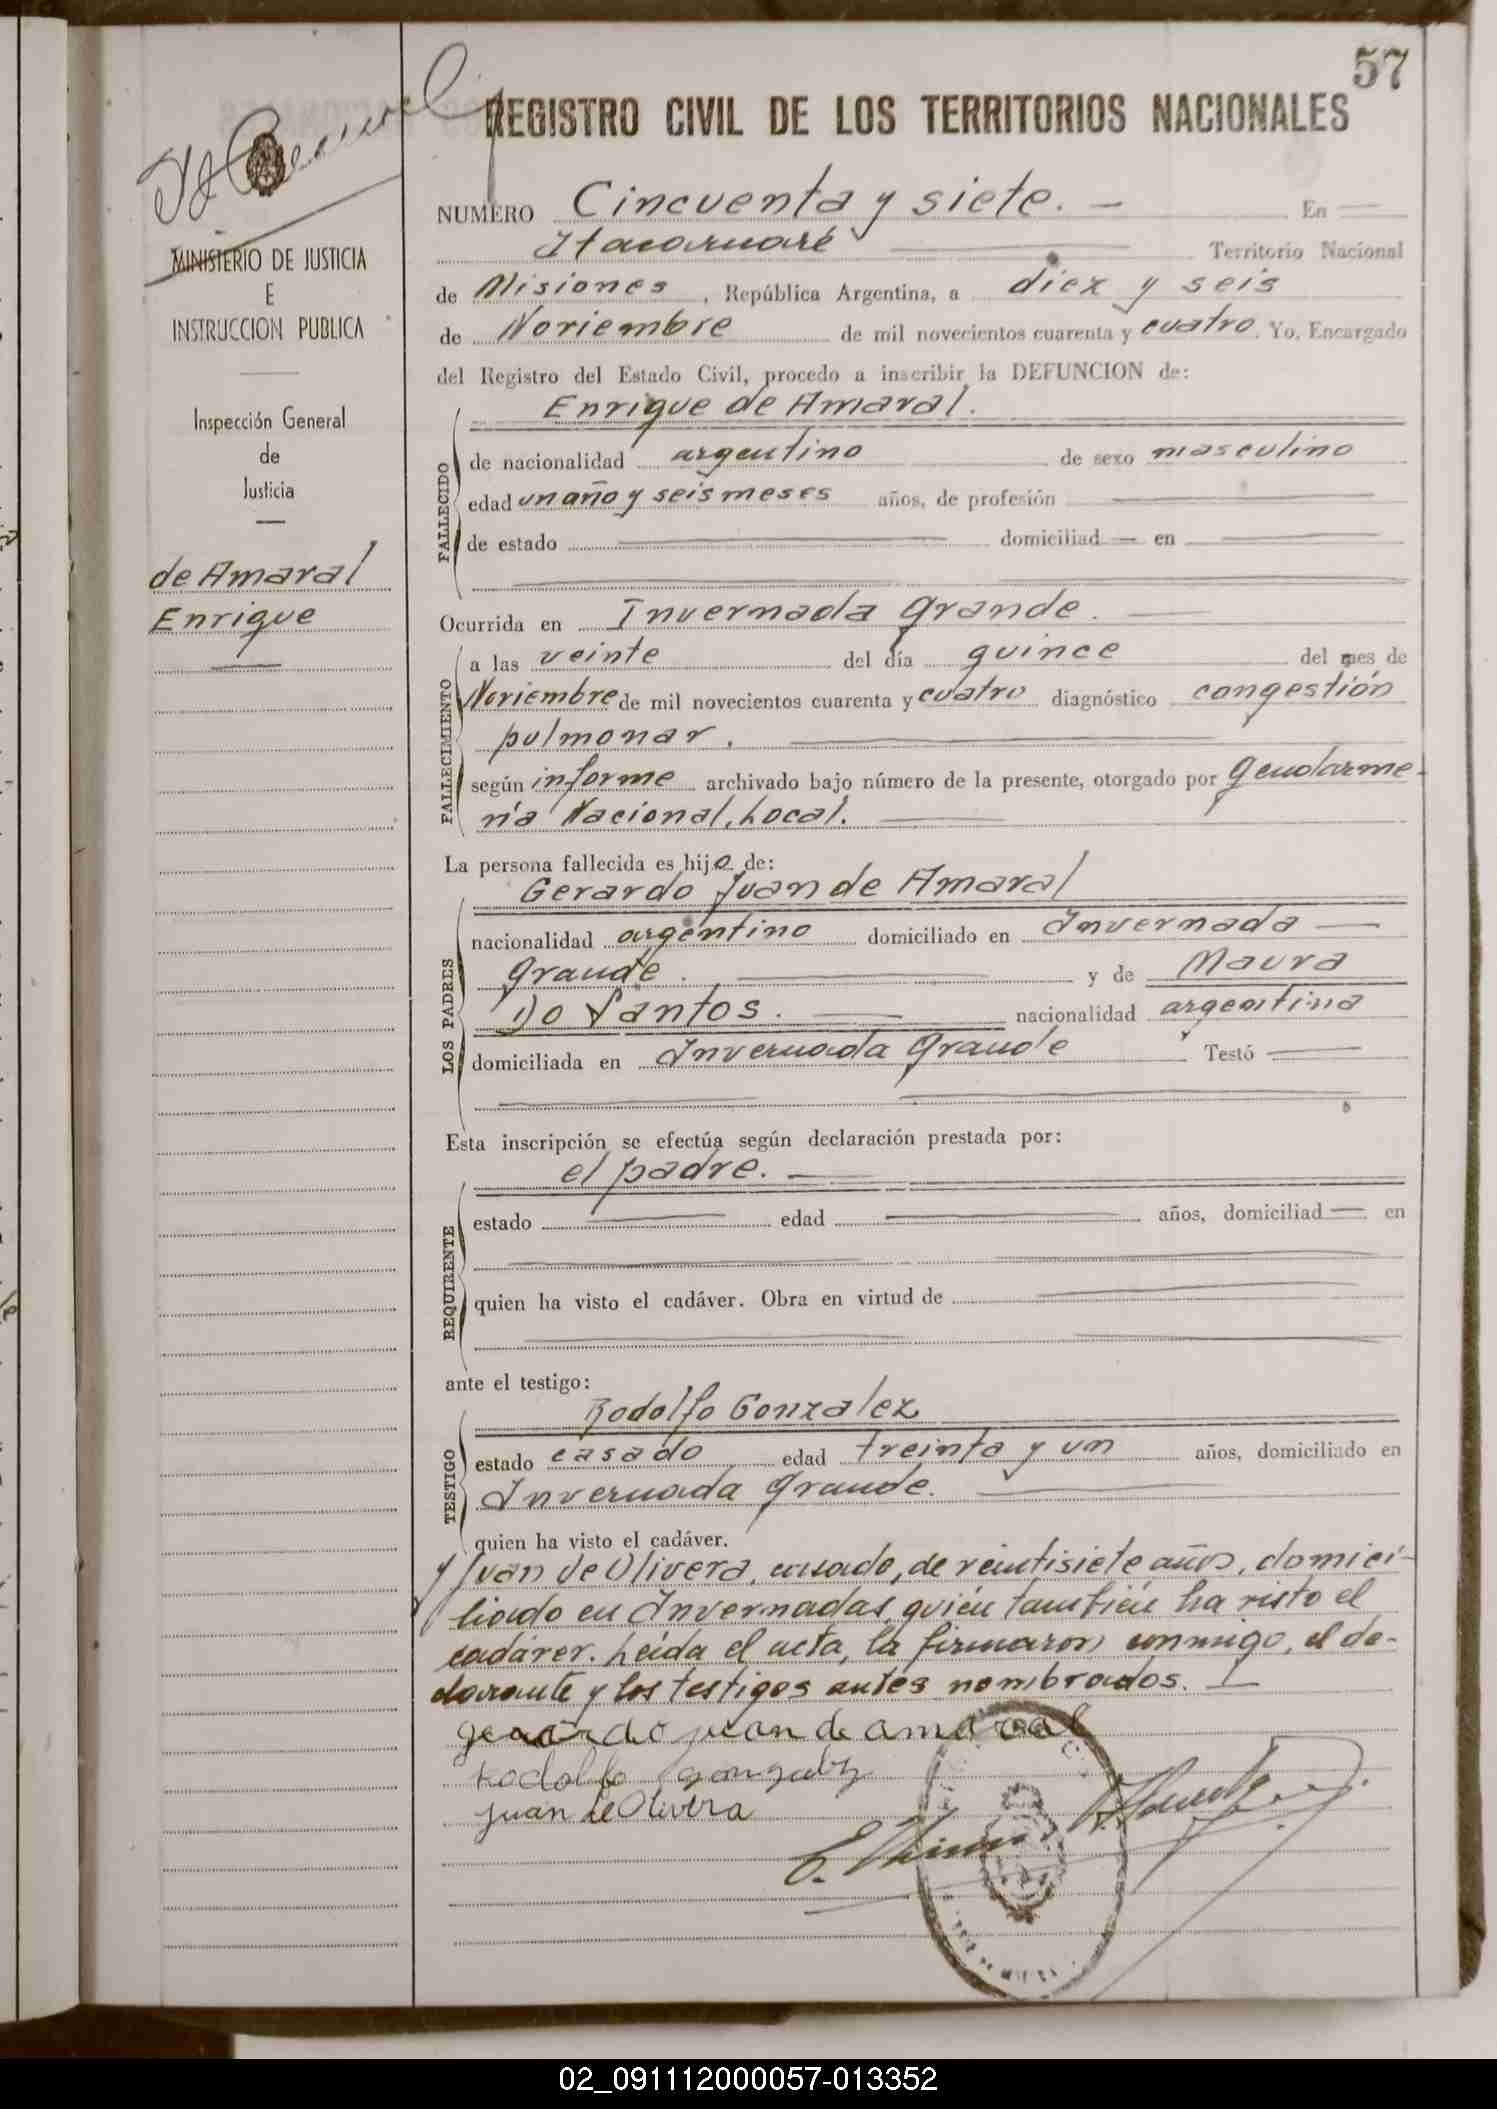 57
REGISTRO CIVIL DE LOS TERRITORIOS NACIONALES
MINISTERIO DE JUSTICIA
E
INSTRUCCION PUBLICA
Inspección General
de
Justicia
de Amaral
Enrique
NUMERO Cincuenta y siete. — En —
Itacaruaré — Territorio Nacional
de Misiones, República Argentina, a diez y seis
de Noviembre de mil novecientos cuarenta y cuatro. Yo, Encargado
del Registro del Estado Civil, procedo a inscribir la DEFUNCION de:
Enrique de Amaral.
FALLECIDO
de nacionalidad argentino de sexo masculino
edad un año y seis meses años, de profesión —
de estado — domiciliad — en —
Ocurrida en Invernada Grande. —
FALLECIMIENTO
a las veinte del día quince del mes de
Noviembre de mil novecientos cuarenta y cuatro diagnóstico congestión
pulmonar. —
según informe archivado bajo número de la presente, otorgado por Gendarme-
ría Nacional, Local. —
La persona fallecida es hijo de:
Gerardo Juan de Amaral
LOS PADRES
nacionalidad argentino domiciliado en Invernada —
Grande. — y de Maura
Do Santos. — nacionalidad argentina
domiciliada en Invernada Grande Testó —
Esta inscripción se efectúa según declaración prestada por:
el padre. —
REQUIRENTE
estado — edad — años, domiciliad — en
quien ha visto el cadáver. Obra en virtud de —
ante el testigo:
Rodolfo Gonzalez
TESTIGO
estado casado edad treinta y un años, domiciliado en
Invernada Grande. —
quien ha visto el cadáver.
y Juan de Olivera, casado, de veintisiete años, domici-
liado en Invernadas, quién también ha visto el
cadáver. Leída el acta, la firmaron conmigo, el de-
clarante y los testigos antes nombrados. —
gerardo juan de amaral
Rodolfo gonzalez
juan de Olivera
02_091112000057-013352